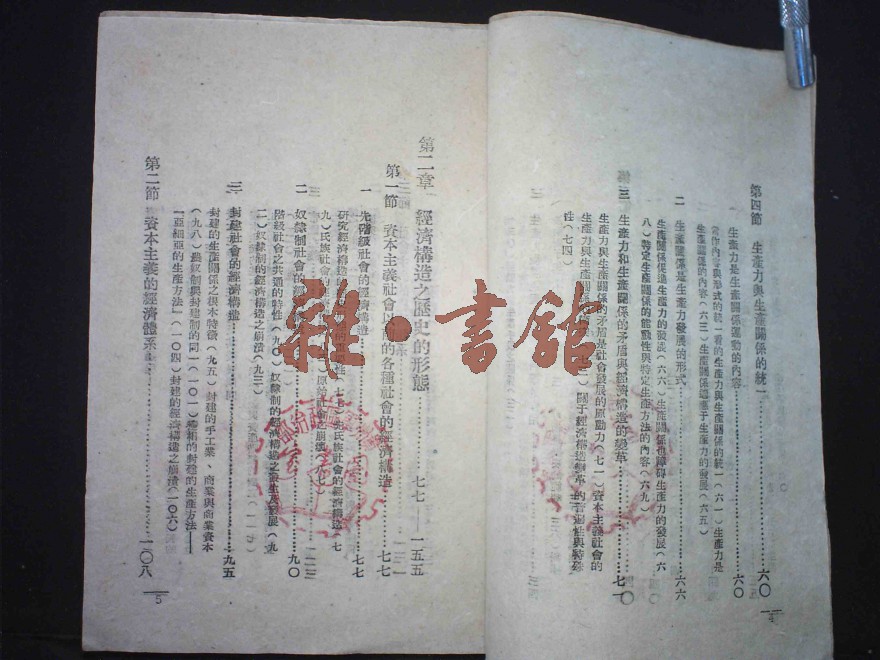 第四節 生產力與生產關係的統一…………六〇
一 生產力是生產關係運動的內容…………六〇
當作內容與形式的統一看的生產力與生產關係的統一(六一)生產力是
生產關係的內容(六三)生產關係適應于生產力的發展(六五)
二 生產關係是生產力發展的形式…………六六
生產關係促進生產力的發展(六六)生產關係也障碍生產力的發展(六
八)特定生產關係的能動性與特定生產方法的內容(六九)
三 生產力和生產關係的矛盾與經濟構造的變革…………七一
生產力與生產關係的矛盾是社會發展的原動力(七一)資本主義社會的
生產力與生產關係的矛盾 關于經濟構造變革的普遍性與特殊
性(七四)
4
第二章 經濟構造之歷史的形態…………七七——一五五
第一節 資本主義社會以前的各種社會的經濟構造…………七七
一 先階級社會的經濟構造…………七七
研究經濟構造 (七七)先氏族社會的經濟構造(七
九)氏族社會的經濟 原始社會的崩壞(八七)
二 奴隸制社會的經濟構造…………九〇
階級社會之共通的特性(九〇)奴隸制的經濟構造之發生及發展(九
二)奴隸制的經濟構造之崩潰(九三)
三 封建社會的經濟構造…………九五
封建的生產關係之根本特徵(九五)封建的手工業、商業與商業資本
(九八)農奴制與封建制的同一(一〇一)變相的封建的生產方法——
『亞細亞的生產方法』(一〇四)封建的經濟構造之崩潰(一〇六)
第二節 資本主義的經濟體系…………一〇八
5
雜·書館